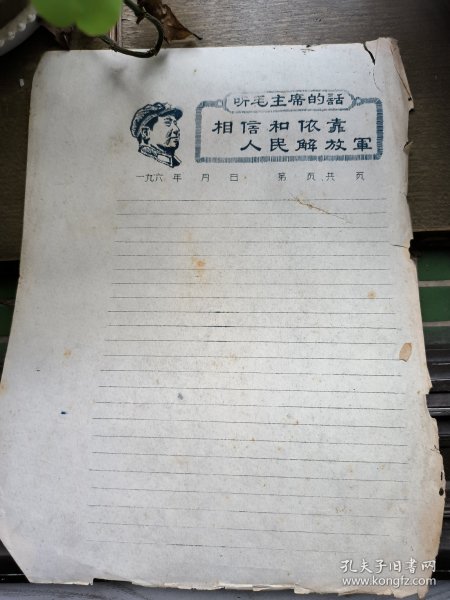 听毛主席的话
相信和依靠
人民解放軍
一九六 年 月 日 第 页 共 页
孔夫子旧书网
www.kongfz.com